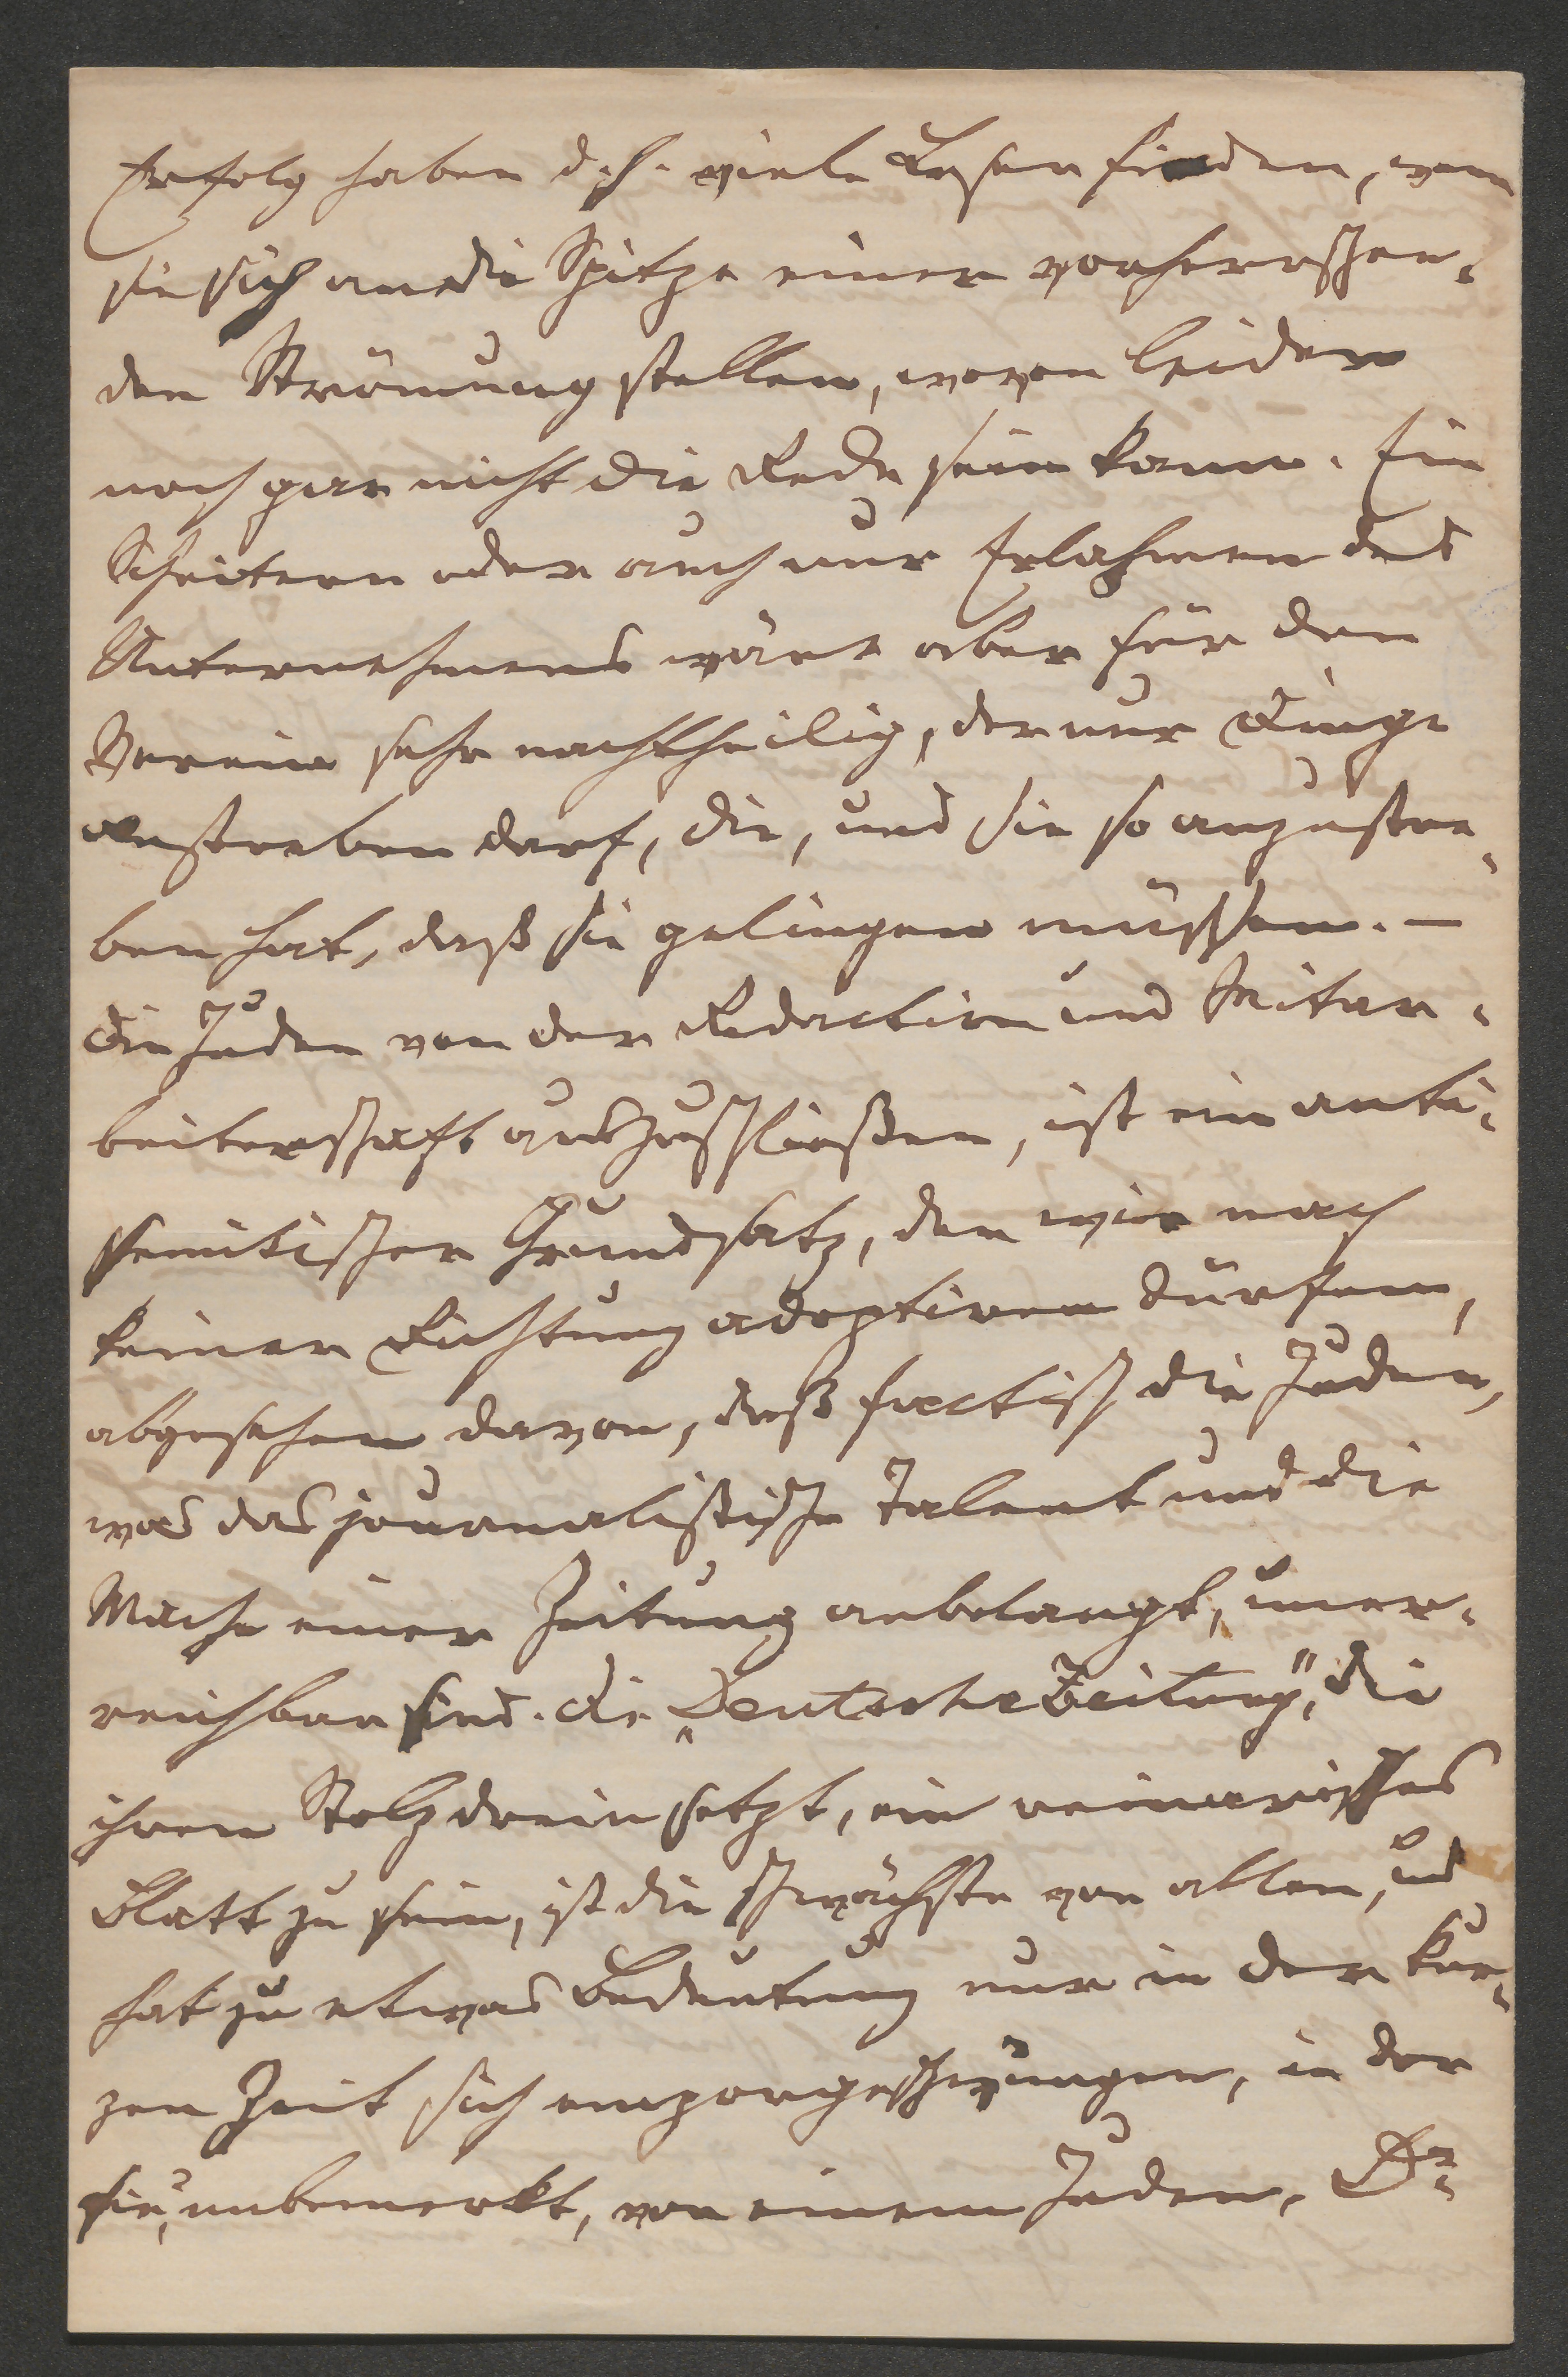 Erfolg haben d. h. viele Leser finden, wenn
sie sich an die Spitze einer vorherrschen-
den Strömung stellen, wovon leider
noch gar nicht die Rede sein kann. Ein
Scheitern oder auch nur Erlahmen des
Unternehmens wäre aber für den
Verein sehr nachtheilig, der nur Dinge
anstreben darf, die, und sie so anzustre-
ben hat, daß sie gelingen müssen. —
Die Juden von der Redaction und Mitar-
beiterschaft auszuschließen, ist ein anti-
semitischer Grundsatz, den wir nach
keiner Richtung adoptiren dürfen,
abgesehen davon, daß factisch die Juden,
was das journalistische Talent und die
Mache einer Zeitung anbelangt, uner-
reichbar sind. Die „Deutsche Zeitung", die
ihren Stolz drein setzt, ein rein arisches
Blatt zu sein, ist die schwächste von allen, und
hat zu etwas Bedeutung nur in der kur-
zen Zeit sich emporgeschwungen, in der
sie, unbemerkt, von einem Juden, Dr.